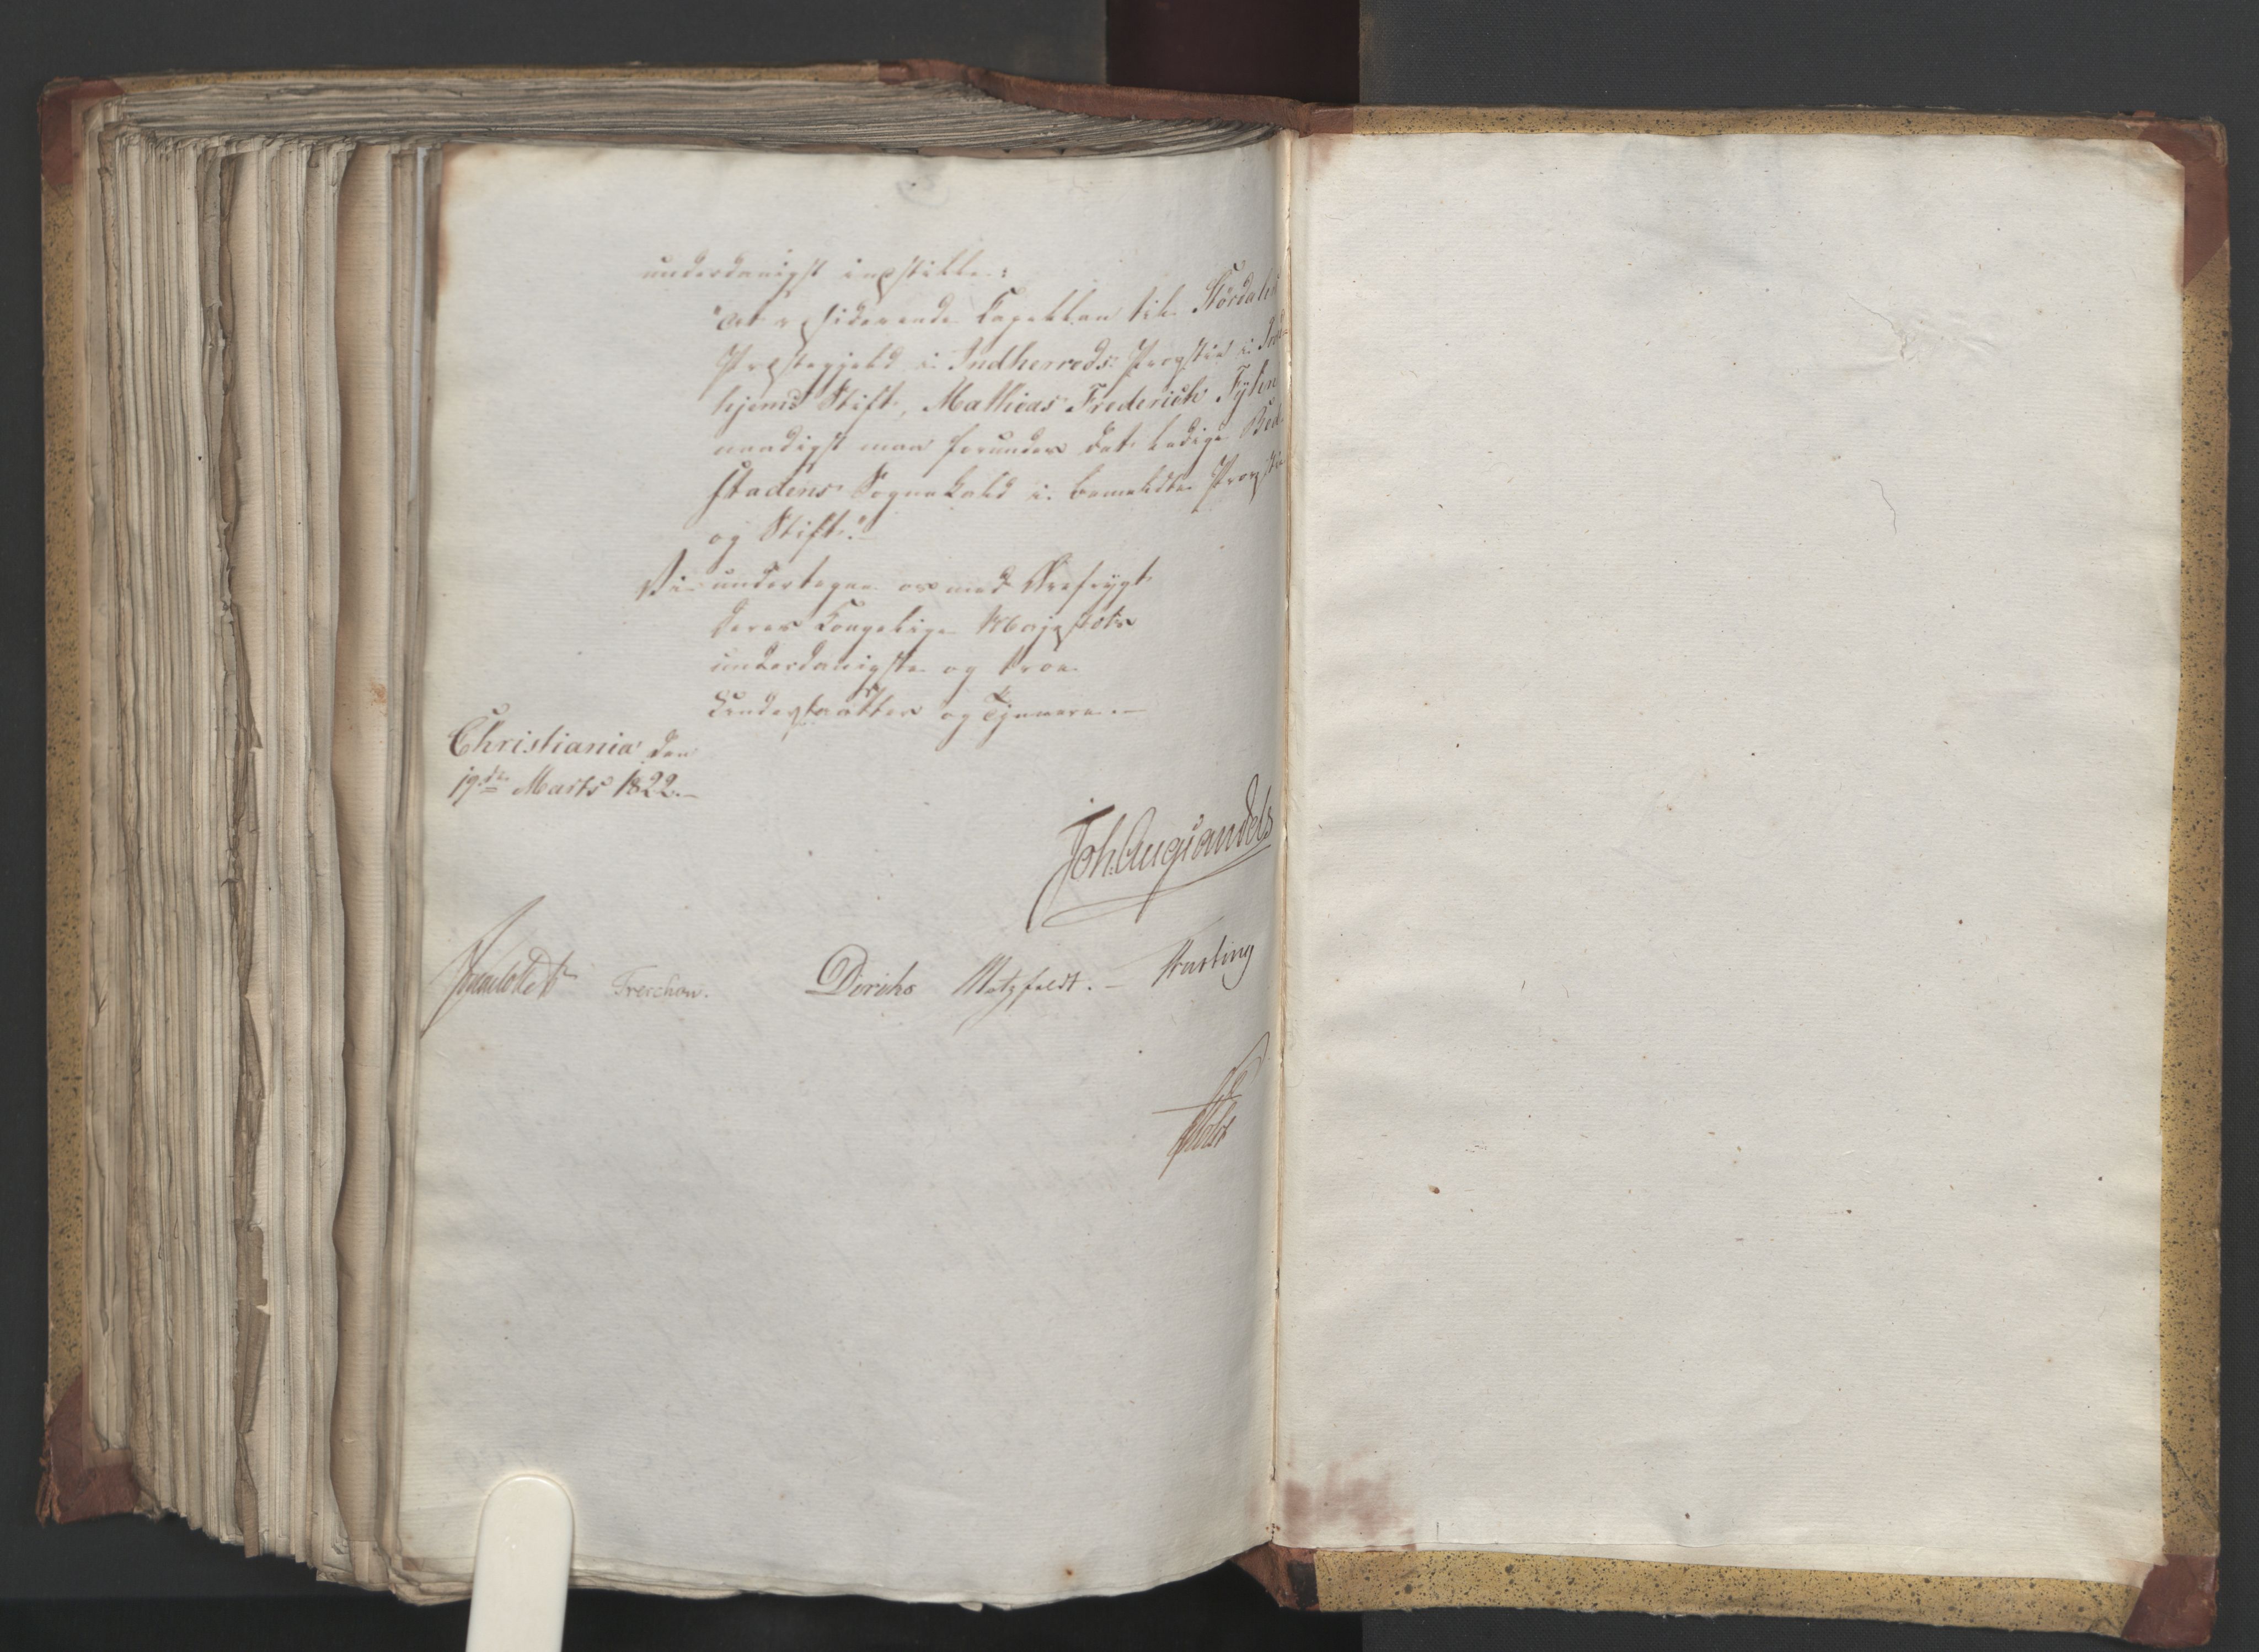 underdanigst indstille:
"At residerende Capellan til Størdalens
Præstegjeld i Indherreds Provstie i Trond-
hjems Stift, Mathias Frederich Fylen
naadigst maa forundes det ledige Bed-
stadens Sognekald i bemeldte Provstie
og Stift."
Vi undertegne os med Ærefrygt
Deres Kongelige Majestæts
underdanigste og troe
Undersaatter og Tjenere.—
Christiania den
19de Marts 1822.—
Joh. Aug. Sandels
Treschow. Diriks Motzfeldt.— Krogh
Holst